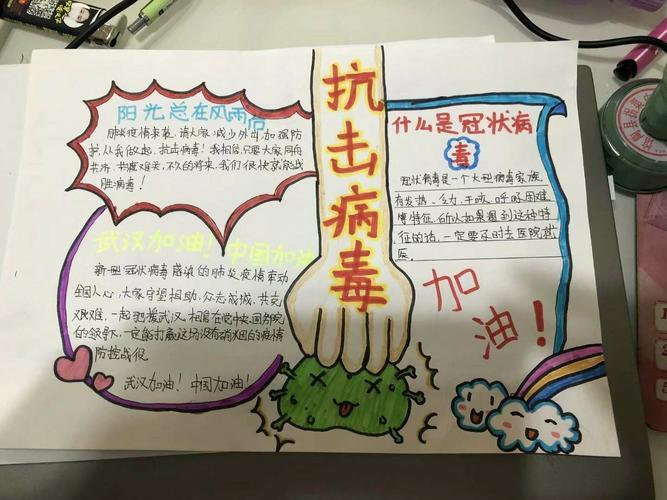 抗击病毒
阳光总在风雨后
肺炎疫情来袭，请大家减少外出,加强防
护,从我做起，抗击病毒！我相信,只要大家同舟
共济，共度难关，不久的将来，我们很快就能战
胜病毒！
武汉加油！中国加油
新型冠状病毒感染的肺炎疫情牵动
全国人心，大家守望相助、众志成城、共克
艰难，一起驰援武汉，相信在党中央、国务院
的领导下，一定能打赢这场没有硝烟的疫情
防控战役。
武汉加油！中国加油！
什么是冠状病
毒
冠状病毒是一个大型病毒家族，
有发热、乏力、干咳、呼吸困难
等特征，所以如果遇到这种特
征的话，一定要及时去医院就
医。
加
油！